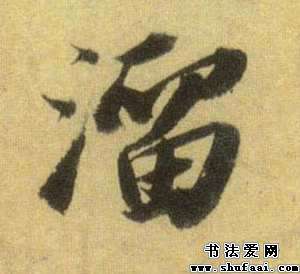 溜
书法爱网
www.shufaai.com